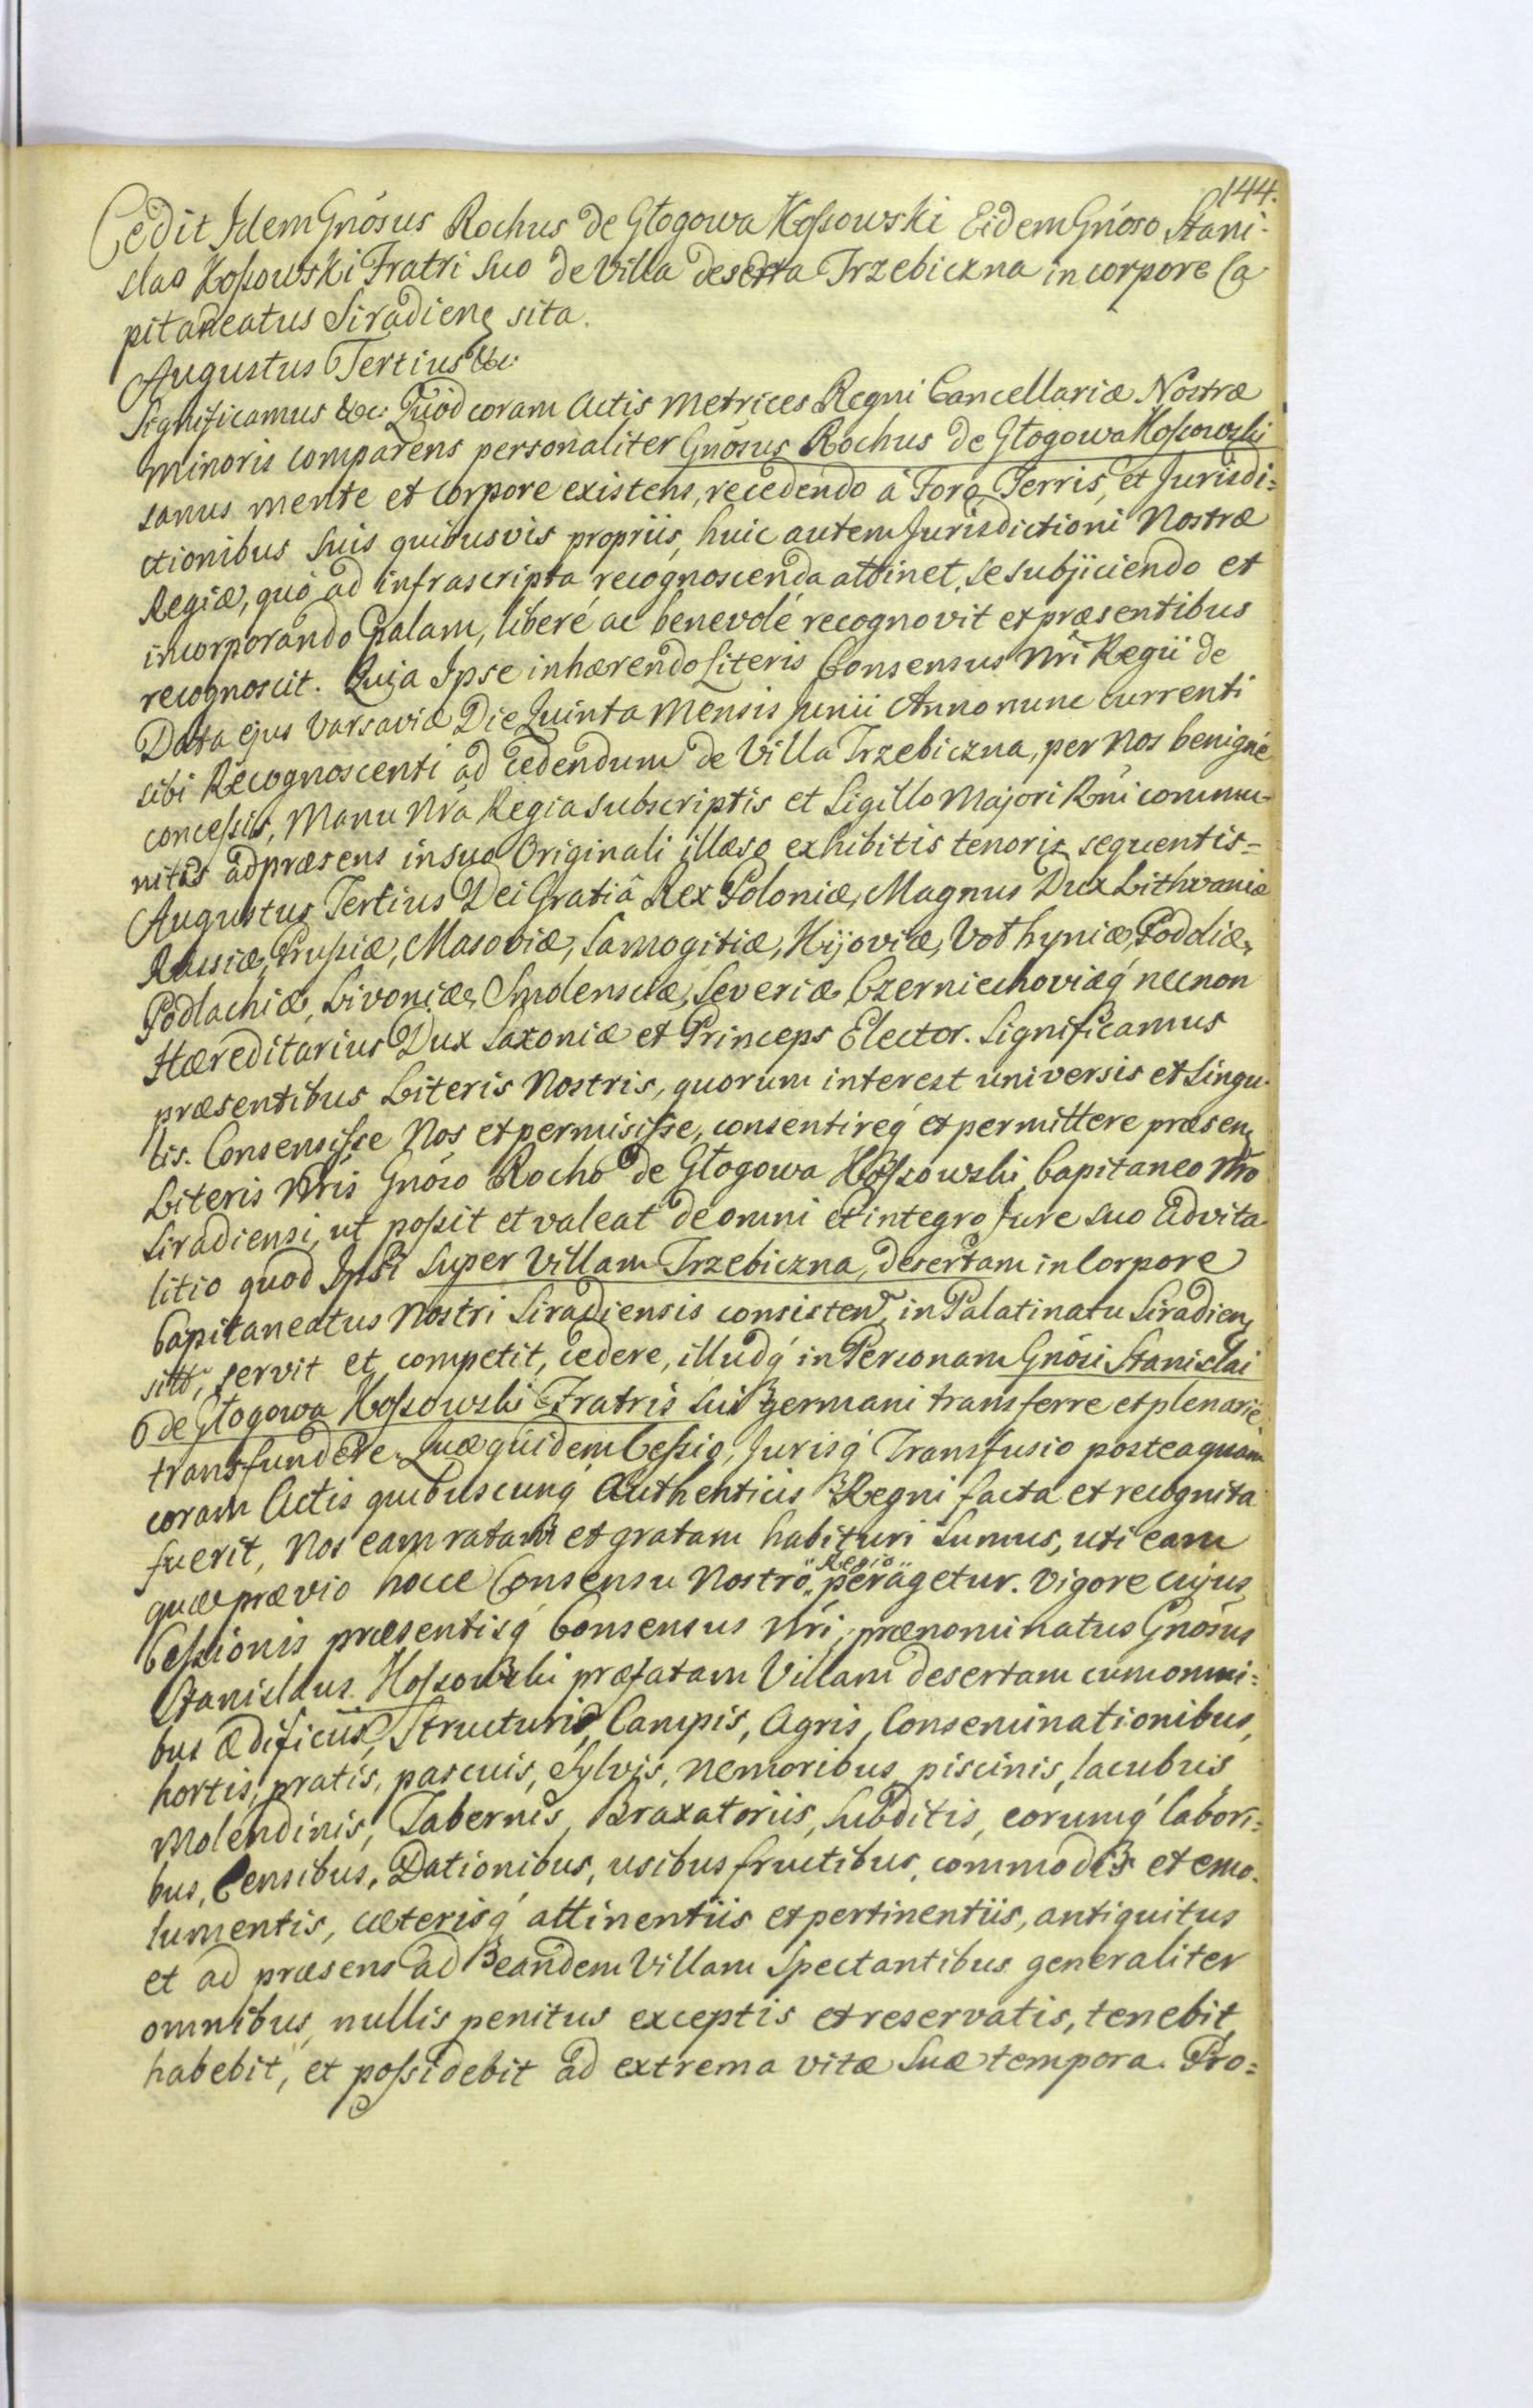 144.
Cedit Idem Gnósus Rochus de Głogowa Kossowski Eidem Gnóso Stani-
slao Kossowski Fratri Suo de Villa deserta Trzebiczna in corpore Ca
pitaneatus Siradien sita.
Augustus Tertius &c:
Significamus &c: Quòd coram Actis Metrices Regni Cancellariæ Nostræ
Minoris comparens personaliter Gnósus Rochus de Głogowa Kossowski
sanus mente et corpore existens, recedendo à Foro, Terris, et Jurisdi=
ctionibus suis quibusvis propriis, huic autem Jurisdictioni Nostræ
Regiæ, quò ad infrascripta recognoscenda attinet, se subjiciendo et
incorporando Palam, liberé ac benevolé recognovit et præsentibus
recognoscit. Quia Ipse inhærendo Literis Consensus Nrí Regii de
Data ejus Varsaviæ Die Quinta Mensis Junii Anno nunc currenti
sibi Recognoscenti ad cedendum de Villa Trzebiczna, per Nos benigné
concessis, Manu Nrá Regia subscriptis et Sigillo Majori Rní commu-
nitis ad præsens in suo Originali illæso exhibitis tenoris sequentis=
Augustus Tertius Dei Gratiâ Rex Poloniæ, Magnus Dux Lithvaniæ
Russiæ, Prussiæ, Masoviæ, Samogitiæ, Kijoviæ, Vołhyniæ, Podoliæ,
Podlachiæ, Livoniæ, Smolensciæ, Severiæ Czerniechoviæq́ necnon
Hæreditarius Dux Saxoniæ et Princeps Elector. Significamus
præsentibus Literis Nostris, quorum interest universis et singu-
lis. Consensisse Nos et permisisse, consentireq́ et permittere præsen
Literis Nrís Gnóso Rocho de Głogowa Kossowski Capitaneo Nro
Siradiensi, ut possit et valeat de omni et integro Jure suo Advita
litio quod Ipsi super Villam Trzebiczna, desertam in Corpore
Capitaneatus Nostri Siradiensis consisten, in Palatinatu Siradien
sitt, servit et competit, cedere, illudq́ in Personam Gnósi Stanislai
de Głogowa Kossowski Fratris sui germani transferre et plenarie
transfundere. Quæ quidem Cessio, Jurisq́ Transfusio posteaquam
coram Actis quibuscunq́ Authenticis Regni facta et recognita
fuerit, Nos eam ratam et gratam habituri sumus, uti eam
quæ prævio hocce Consensu Nostro „Regio„ peragetur. Vigore cujus
Cessionis præsentisq́ Consensus Nrí, prænominatus Gnósus
Stanislaus Kossowski præfatam Villam desertam cum omni=
bus ædificiis, Structuris, Campis, Agris, Conseminationibus,
hortis, pratis, pascuis, Sylvis, Nemoribus, piscinis, lacubus
Molendinis, Tabernis, Braxatoriis, Subditis, eorumq́ labori=
bus, Censibus, Dationibus, usibus fructibus, commodis et emo-
lumentis, cæterisq́ attinentiis et pertinentiis, antiquitus
et ad præsens ad eandem Villam Spectantibus generaliter
omnibus, nullis penitus exceptis et reservatis, tenebit,
habebit, et possidebit ad extrema vitæ suæ tempora. Pro=